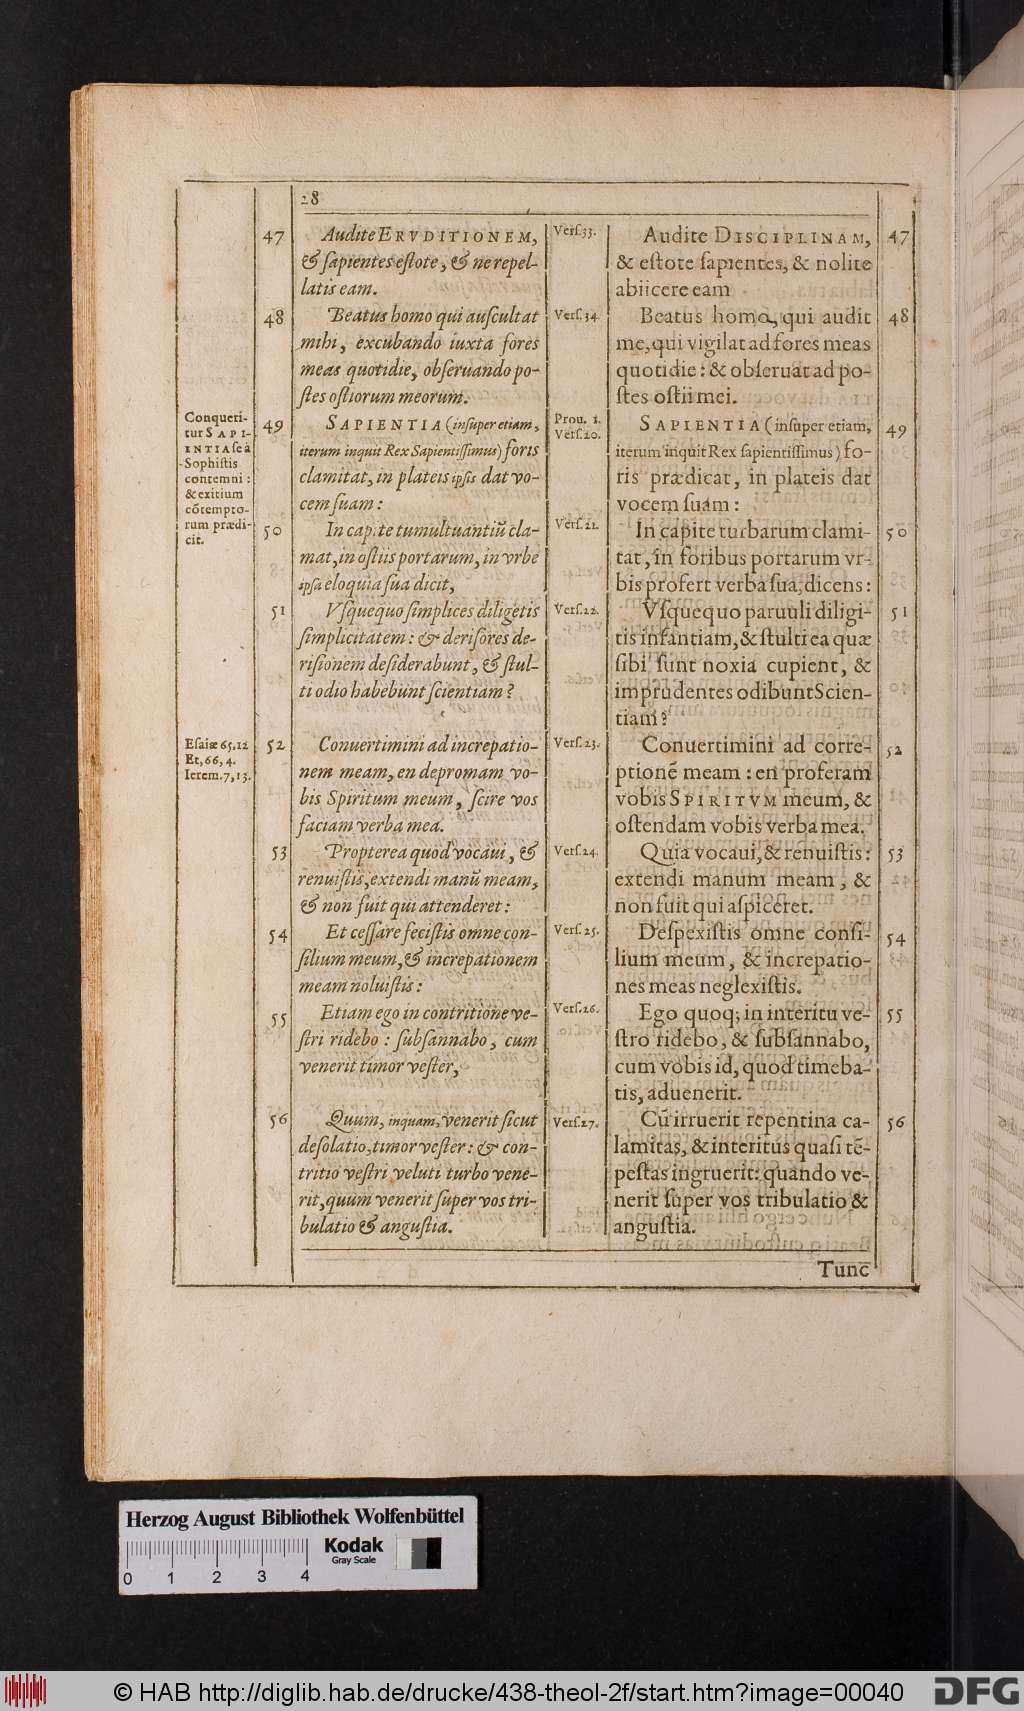 28
47
Audite ERVDITIONEM,
& ſapientes eſtote, & ne repel-
latis eam.
48
Beatus homo qui auſcultat
mihi, excubando iuxta fores
meas quotidie, obſeruando po-
ſtes oſtiorum meorum.
Conqueri-
tur SAPI-
ENTIA ſe à
Sophiſtis
contemni:
& exitium
cōtempto-
rum prædi-
cit.
49
SAPIENTIA (inſuper etiam,
iterum inquit Rex Sapientiſſimus) foris
clamitat, in plateis ipſis dat vo-
cem ſuam:
50
In capite tumultuantiū cla-
mat, in oſtiis portarum, in vrbe
ipſa eloquia ſua dicit,
51
Vſquequo ſimplices diligetis
ſimplicitatem: & deriſores de-
riſionem deſiderabunt, & ſtul-
ti odio habebunt ſcientiam?
Eſaiæ 65, 12
Et, 66, 4.
Ierem. 7, 13.
52
Conuertimini ad increpatio-
nem meam, en depromam vo-
bis Spiritum meum, ſcire vos
faciam verba mea.
53
Propterea quod vocaui, &
renuiſtis, extendi manū meam,
& non fuit qui attenderet:
54
Et ceſſare feciſtis omne con-
ſilium meum, & increpationem
meam noluiſtis:
55
Etiam ego in contritione ve-
ſtri ridebo: ſubſannabo, cum
venerit timor veſter,
56
Quum, inquam, venerit ſicut
deſolatio, timor veſter: & con-
tritio veſtri veluti turbo vene-
rit, quum venerit ſuper vos tri-
bulatio & anguſtia.
Verſ. 33.
Audite DISCIPLINAM,
& eſtote ſapientes, & nolite
abiicere eam
47
Verſ. 34
Beatus homo, qui audit
me, qui vigilat ad fores meas
quotidie: & obſeruat ad po-
ſtes oſtii mei.
48
Prou. 1.
Verſ. 20.
SAPIENTIA (inſuper etiam,
iterum inquit Rex ſapientiſſimus) fo-
ris prædicat, in plateis dat
vocem ſuam:
49
Verſ. 21.
In capite turbarum clami-
tat, in foribus portarum vr-
bis profert verba ſua, dicens:
50
Verſ. 22.
Vſquequo paruuli diligi-
tis infantiam, & ſtulti ea quæ
ſibi ſunt noxia cupient, &
imprudentes odibunt Scien-
tiam?
51
Verſ. 23.
Conuertimini ad corre-
ptionē meam: en proferam
vobis SPIRITVM meum, &
oſtendam vobis verba mea.
52
Verſ. 24.
Quia vocaui, & renuiſtis:
extendi manum meam, &
non fuit qui aſpiceret.
53
Verſ. 25.
Deſpexiſtis omne conſi-
lium meum, & increpatio-
nes meas neglexiſtis.
54
Verſ. 26.
Ego quoq; in interitu ve-
ſtro ridebo, & ſubſannabo,
cum vobis id, quod timeba-
tis, aduenerit.
55
Verſ. 27.
Cū irruerit repentina ca-
lamitas, & interitus quaſi tē-
peſtas ingruerit: quando ve-
nerit ſuper vos tribulatio &
anguſtia.
56
Tunc
Herzog August Bibliothek Wolfenbüttel
0 1 2 3 4
Kodak
Gray Scale
© HAB http://diglib.hab.de/drucke/438-theol-2f/start.htm?image=00040
DFG